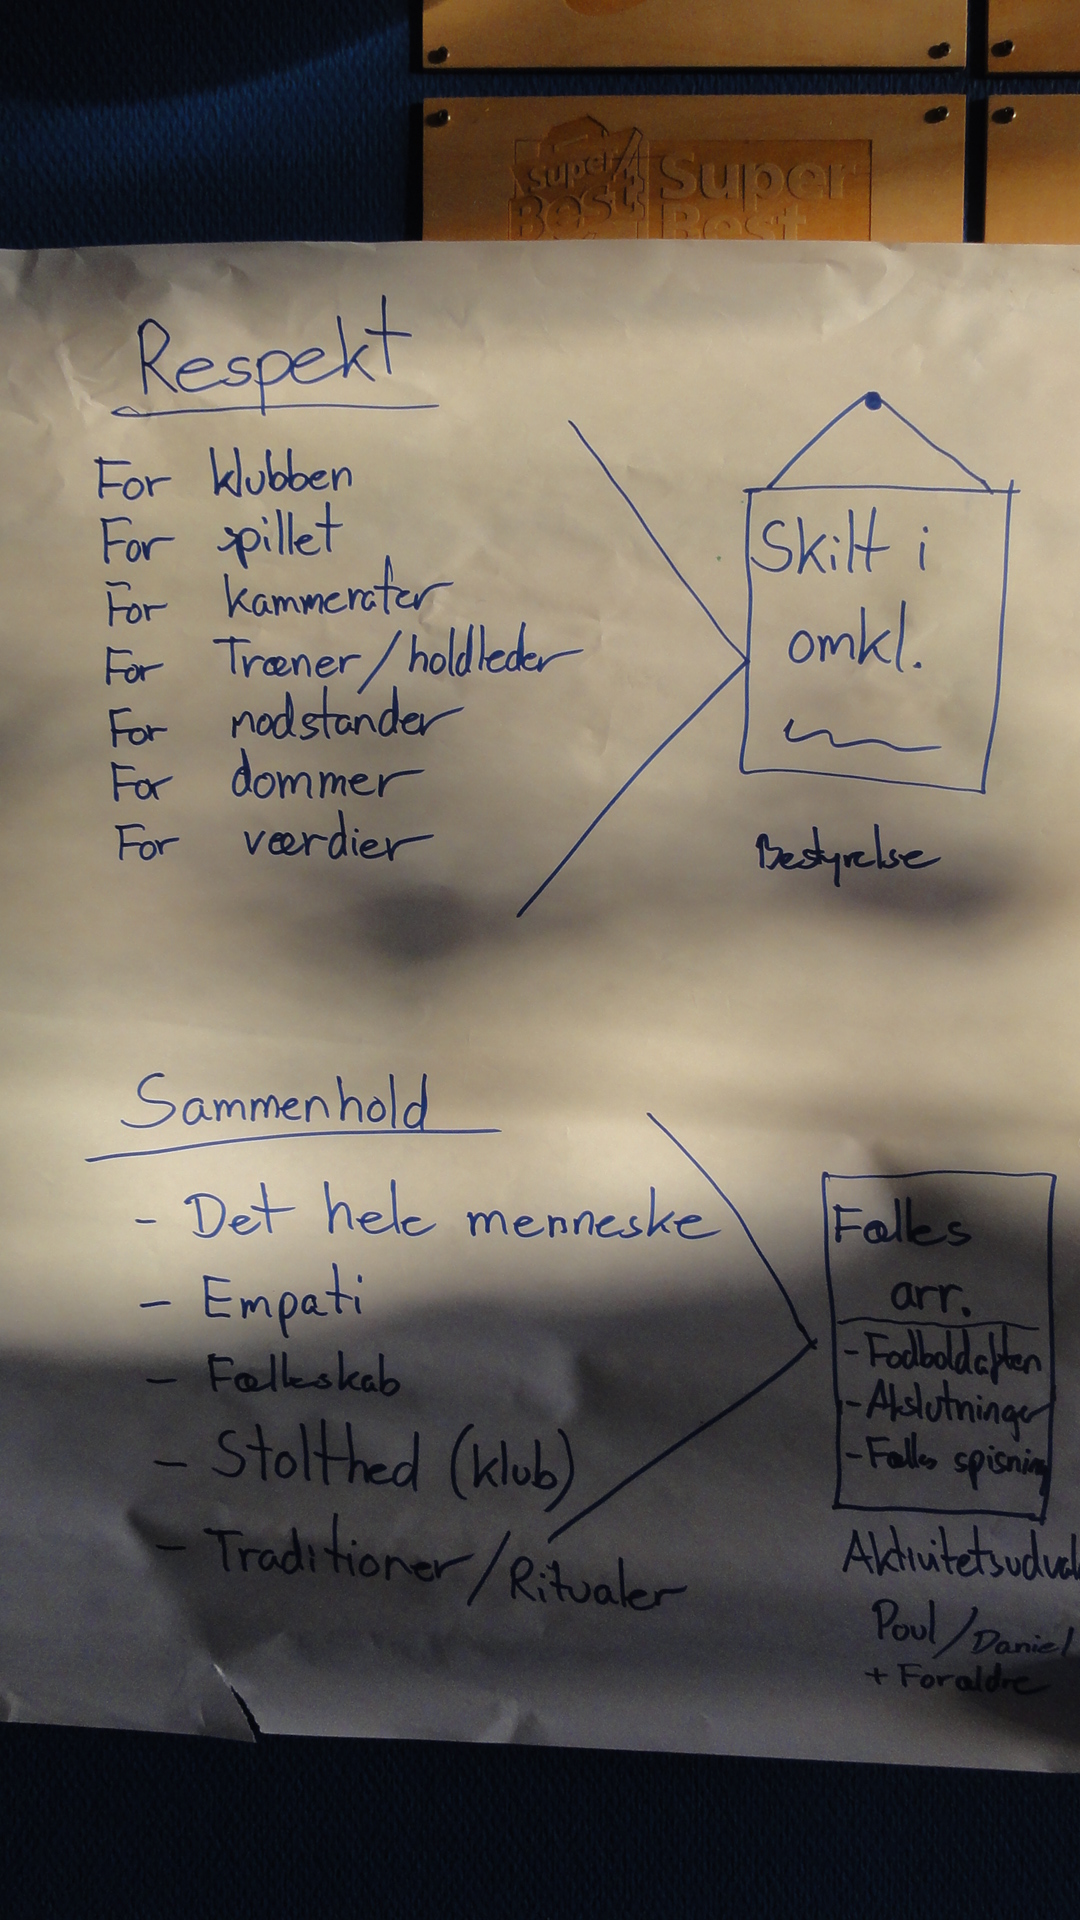 Super
Best
Super
Best
Respekt
For klubben
For spillet
For kammerater
For Træner/holdleder
For modstander
For dommer
For værdier
Skilt i
omkl.
Bestyrelse
Sammenhold
- Det hele menneske
- Empati
- Fælleskab
- Stolthed (klub)
- Traditioner/Ritualer
Fælles
arr.
- Fodboldaften
- Afslutninger
- Fælles spisning
Aktivitetsudval
Poul/Daniel
+ Forældre